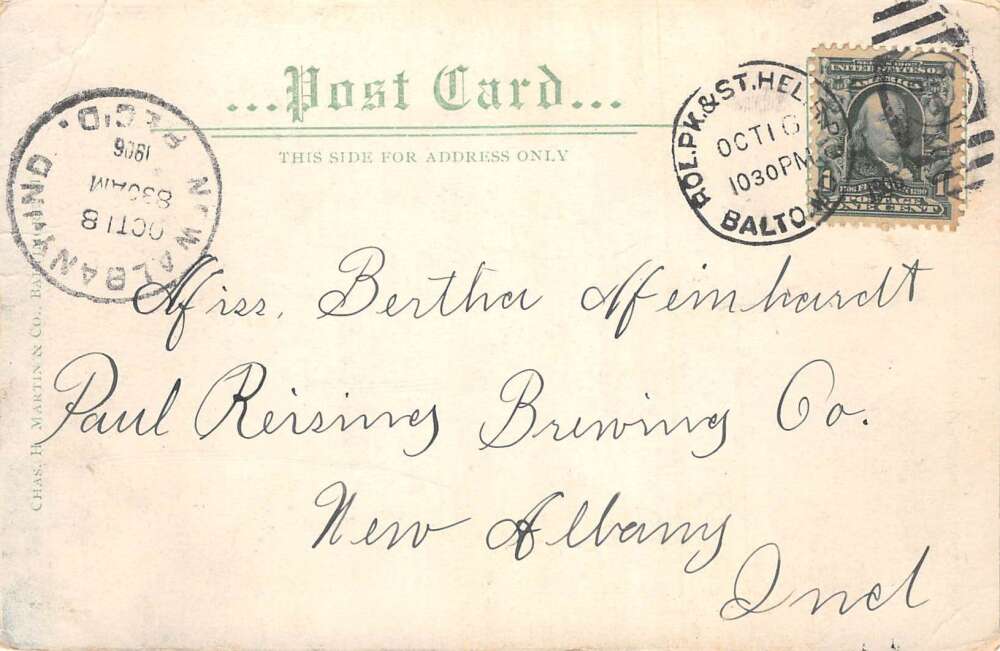 ...Post Card...
THIS SIDE FOR ADDRESS ONLY
ROL.PK.&ST.HEL
OCT 16
1030PM
BALTO.M
UNITED STATES OF
AMERICA
1
POSTAGE
ONE CENT
NEW ALBANY, IND.
REC'D.
OCT 18
830AM
1906
Miss. Bertha Meinhardt
Paul Reising Brewing Co.
New Albany
Ind
CHAS. H. MARTIN & CO.,